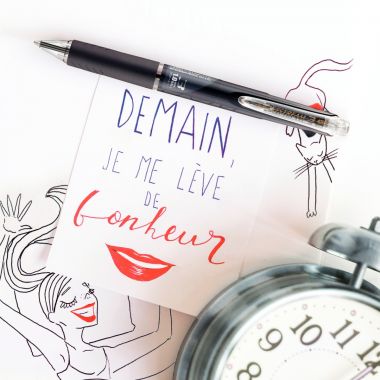 DEMAIN,
JE ME LÈVE
DE
bonheur
1.0
12
11
10
9
8